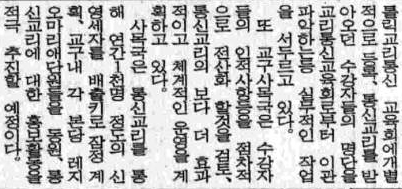 톨릭교리통신 교육회에개별
적으로 등록, 통신교리를 받
아오던 수강자들의 명단을
교리통신교육회로부터 이관
파악하는등 실무적인 작업
을 서두르고 있다.
또 교구사목국은 수강자
들의 인적사항등을 점차적
으로 전산화 할것을 검토,
통신교리의 보다 더 효과
적이고 체계적인 운영을 계
획하고 있다.
사목국은 통신교리를 통
해 연간 1천명 정도의 신
영세자를 배출키로 잠정 계
획, 교구내 각 본당 레지
오마리애단원들을 동원, 통
신교리에 대한 홍보활동을
적극 추진할 예정이다.